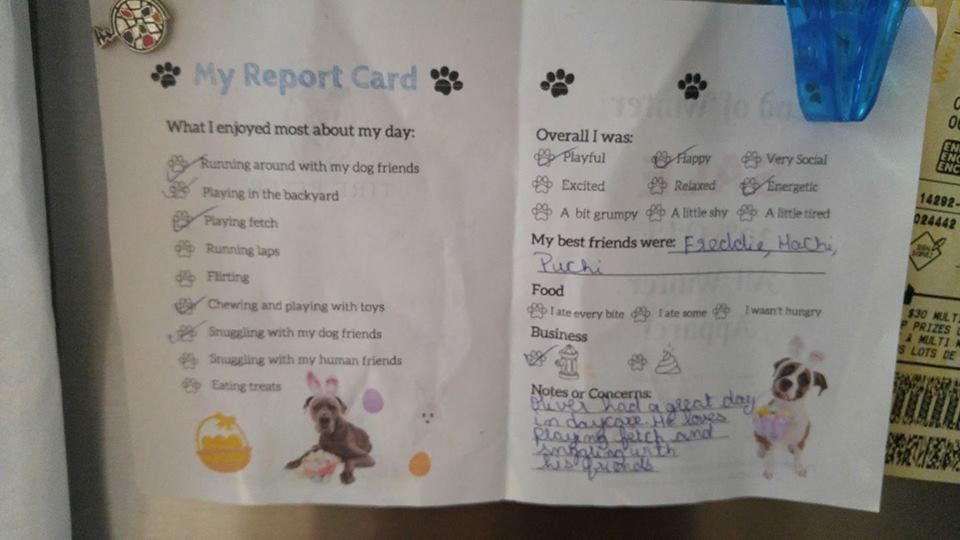 My Report Card
What I enjoyed most about my day:
Running around with my dog friends
Playing in the backyard
Playing fetch
Running laps
Flirting
Chewing and playing with toys
Snuggling with my dog friends
Snuggling with my human friends
Eating treats
Overall I was:
Playful Happy Very Social
Excited Relaxed Energetic
A bit grumpy A little shy A little tired
My best friends were: Freddie, Hachi,
Puchi
Food
I ate every bite I ate some I wasn't hungry
Business
Notes or Concerns:
Oliver had a great day
in daycare. He loves
playing fetch and
snuggling with
his friends
14292-
024442
$30 MULTI
P PRIZES
A MULTI
S LOTS DE